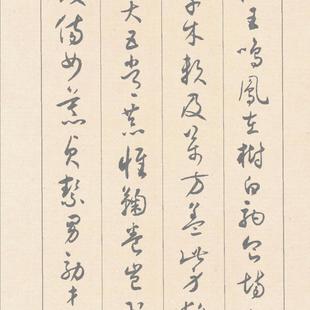 王鳴鳳在樹白駒食場
草木賴及萬方蓋此身髮
大五常恭惟鞠養豈敢
毀傷女慕貞絜男效才